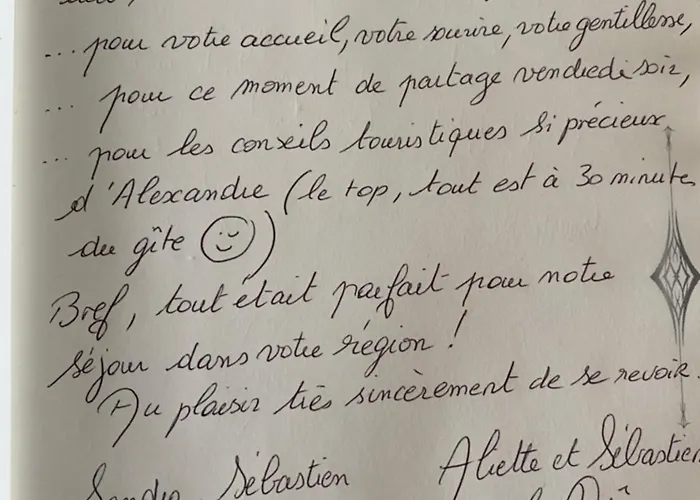 ... pour votre accueil, votre sourire, votre gentillesse,
... pour ce moment de partage vendredi soir,
... pour les conseils touristiques si précieux
d'Alexandre (le top, tout est à 30 minutes
du gîte)
Bref, tout était parfait pour notre
séjour dans votre région !
Au plaisir très sincèrement de se revoir.
Sébastien Aliette et Sébastien